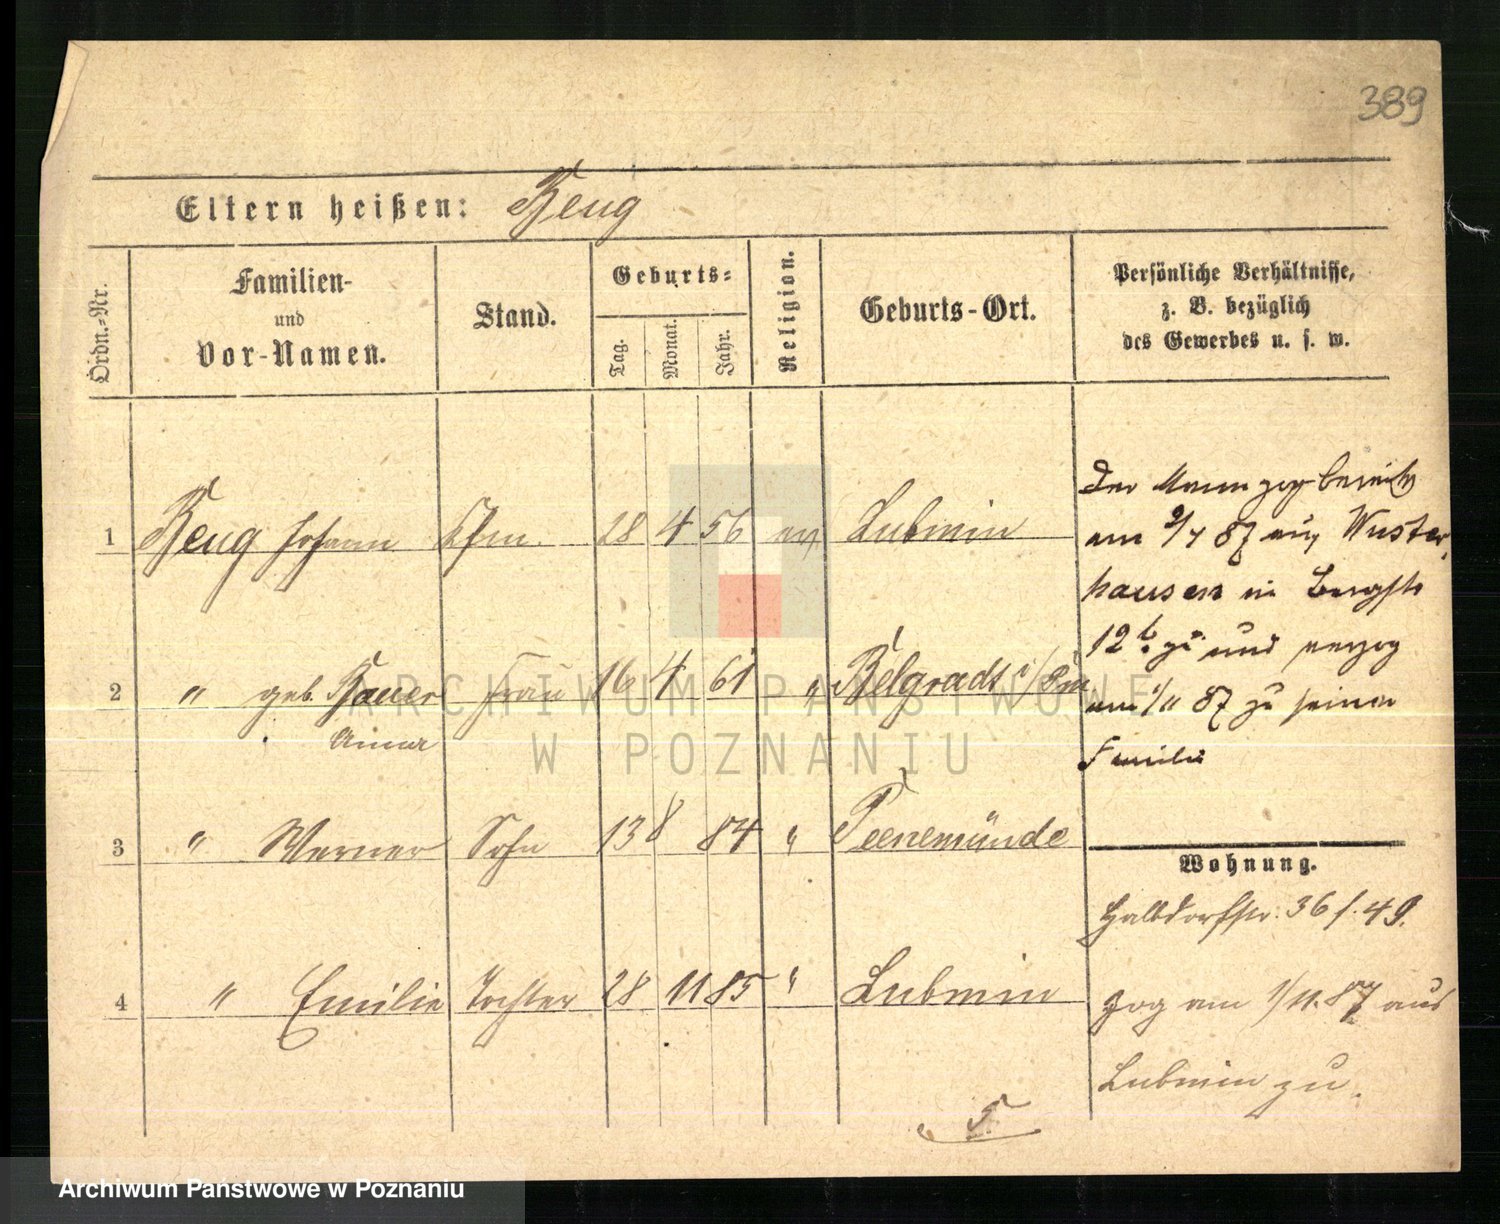 389
Eltern heißen: Beug
Ordn.-Nr.
Familien-
und
Vor-Namen.
Stand.
Geburts-
Tag.
Monat.
Jahr.
Religion.
Geburts-Ort.
Persönliche Verhältnisse,
z. B. bezüglich
des Gewerbes u. s. w.
1 Beug Johann Kfm. 28 4 56 ev. Lubmin
2 " geb. Bauer Frau 16 4 61 " Belgradt i/Pm
Anna
3 " Werner Sohn 13 8 84 " Peenemünde
4 " Emilie Tochter 28 11 85 " Lubmin
Der Mann zog bereits
am 2/7 87 aus Wuster-
hausen in Bergstr
12b. zu und verzog
am 1/11 87 zu seiner
Familie
Wohnung.
Halbdorfstr. 36 f. 49.
zog am 1/11. 87 aus
Lubmin zu.
ARCHIWUM PAŃSTWOWE
W POZNANIU
Archiwum Państwowe w Poznaniu